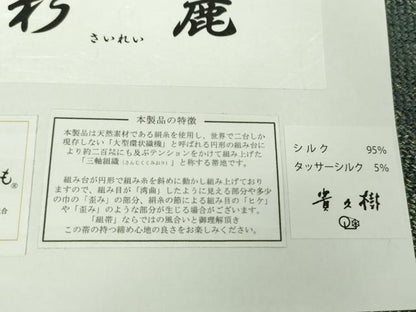 彩 麗
さいれい
も®
組合
本製品の特徴
本製品は天然素材である絹糸を使用し、世界で二台しか
現存しない「大型環状織機」と呼ばれる円形の組み台に
より約二百㌔にも及ぶテンションをかけて組み上げた
「三軸組織(さんじくくみおり)」と称する帯地です。
組み台が円形で組み糸を斜めに動かし組み上げており
ますので、組み目が「湾曲」したように見える部分や多少
の巾の「歪み」の部分、絹糸の節による組み目の「ヒケ」
や「歪み」のような部分が生じる場合がございます。
「組帯」ならではの風合いと御理解頂き
この帯の持つ締め心地の良さをお楽しみください。
シルク 95%
タッサーシルク 5%
貴久樹